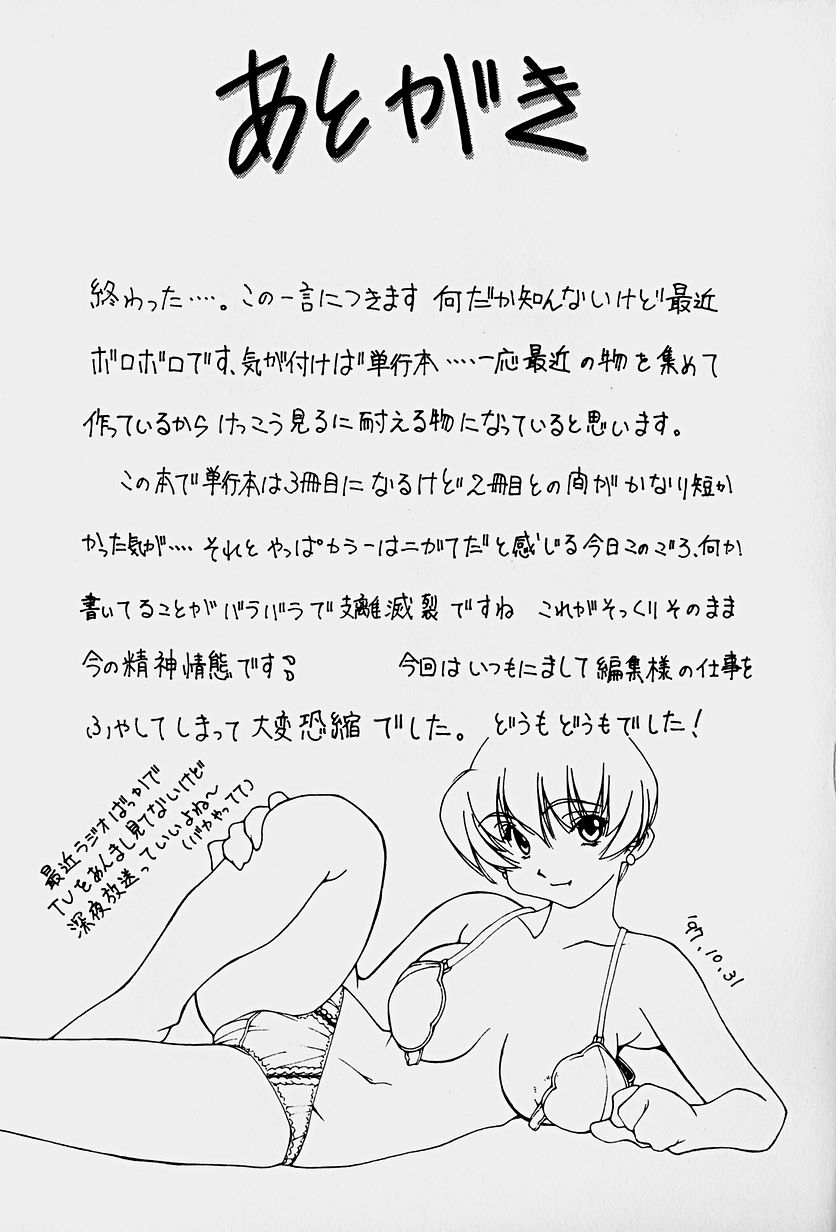 あとがき
終わった‥‥。この一言につきます 何だか知んないけど最近
ボロボロです、気が付けば単行本‥‥一応最近の物を集めて
作っているからけっこう見るに耐える物になっていると思います。
この本で単行本は3冊目になるけど2冊目との間がかなり短か
かった気が‥‥それとやっぱカラーはニガてだと感じる今日このごろ、何か
書いてることがバラバラで支離滅裂ですね これがそっくりそのまま
今の精神情態です。 今回はいつもにまして編集様の仕事を
ふやしてしまって大変恐縮でした。 どうもどうもでした!
最近ラジオばっかで
TVをあんまし見てないけど
深夜放送っていいよね〜
(バカやってて)
'97.10.31